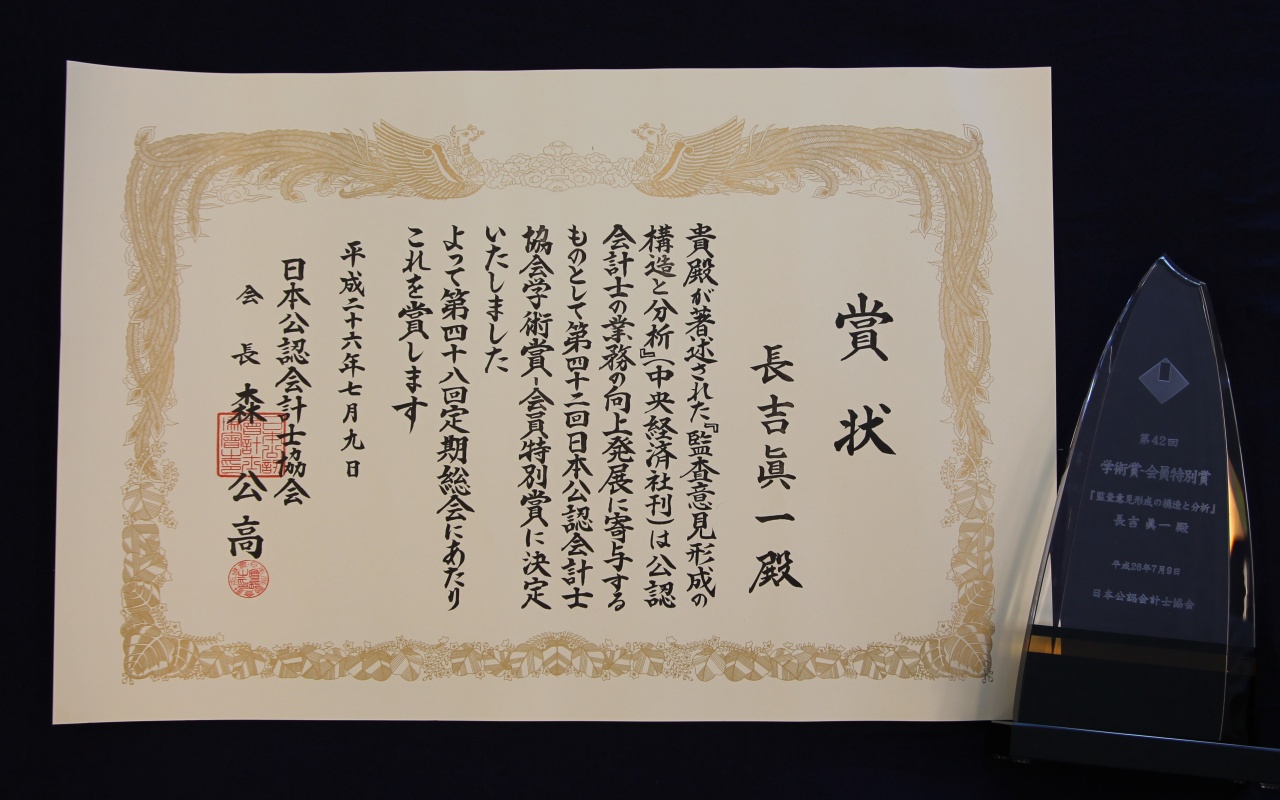 賞状
長吉眞一殿
貴殿が著述された『監査意見形成の
構造と分析』(中央経済社刊)は公認
会計士の業務の向上発展に寄与する
ものとして第四十二回日本公認会計士
協会学術賞-会員特別賞に決定
いたしました
よって第四十八回定期総会にあたり
これを賞します
平成二十六年七月九日
日本公認会計士協会
会長 森公高
第42回
学術賞-会員特別賞
『監査意見形成の構造と分析』
長吉眞一殿
平成26年7月9日
日本公認会計士協会